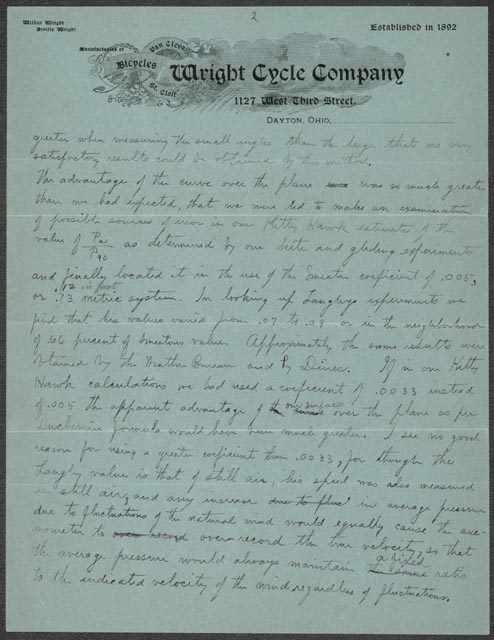 2
Wilbur Wright
Orville Wright
Established in 1892
Manufacturers of
Bicycles
Van Cleve
St. Clair
Wright Cycle Company
1127 West Third Street.
DAYTON, OHIO,
greater when measuring the small angles than the larger that no very
satisfactory results could be obtained by this method.
The advantage of the curve over the plane was so much greater
than we had expected, that we were led to make an examination
of possible sources of error in our Kitty Hawk estimate of the
value of Pa/P90 as determined by our kite and gliding experiments
and finally located it in the use of the Smeaton coeficient of .005,
or .13 metric system. In looking up Langley's experiments we
find that his values varied from .07 to .09 or in the neighborhood
of .66 percent of Smeatons value. Approximately the same results were
obtained by the Weather Bureau and by Dines. If in our Kitty
Hawk calculations we had used a coeficient of .0033 instead
of .005 the apparent advantage of our surface over the plane as per
Duchemin formula would have been much greater. I see no good
reason for using a greater coeficient than .0033, for though the
Langley value is that of still air, his speed was also measured
in still air, and any increase due to fluc in average pressure
due to fluctuations of the natural wind would equally cause the ane-
mometer to over record over-record the true velocity, so that
the average pressure would always maintain a fixed ratio
to the indicated velocity of the wind, regardless of fluctuations.